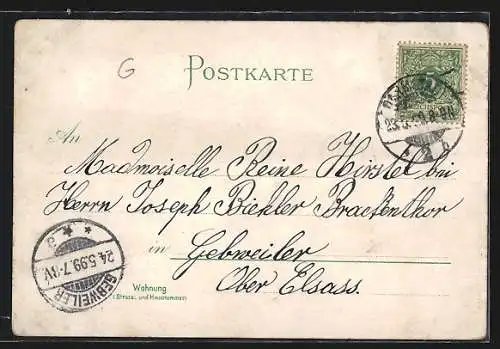 G
POSTKARTE
5
An
Mademoiselle Reine Hirstel bei
Herrn Joseph Biehler
in Gebweiler
Ober Elsass.
Wohnung
(Strasse und Hausnummer)
GEBWEILER
24.5.99.7-8V.
a